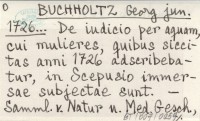 0 BUCHHOLTZ Georg jun.
1726... De iudicio per aquam,
cui mulieres, quibus sicci-
tas anni 1726 adscribeba-
tur, in Scepusio immer-
sae subjectae sunt. —
Samml. v. Natur u. Med. Gesch.,